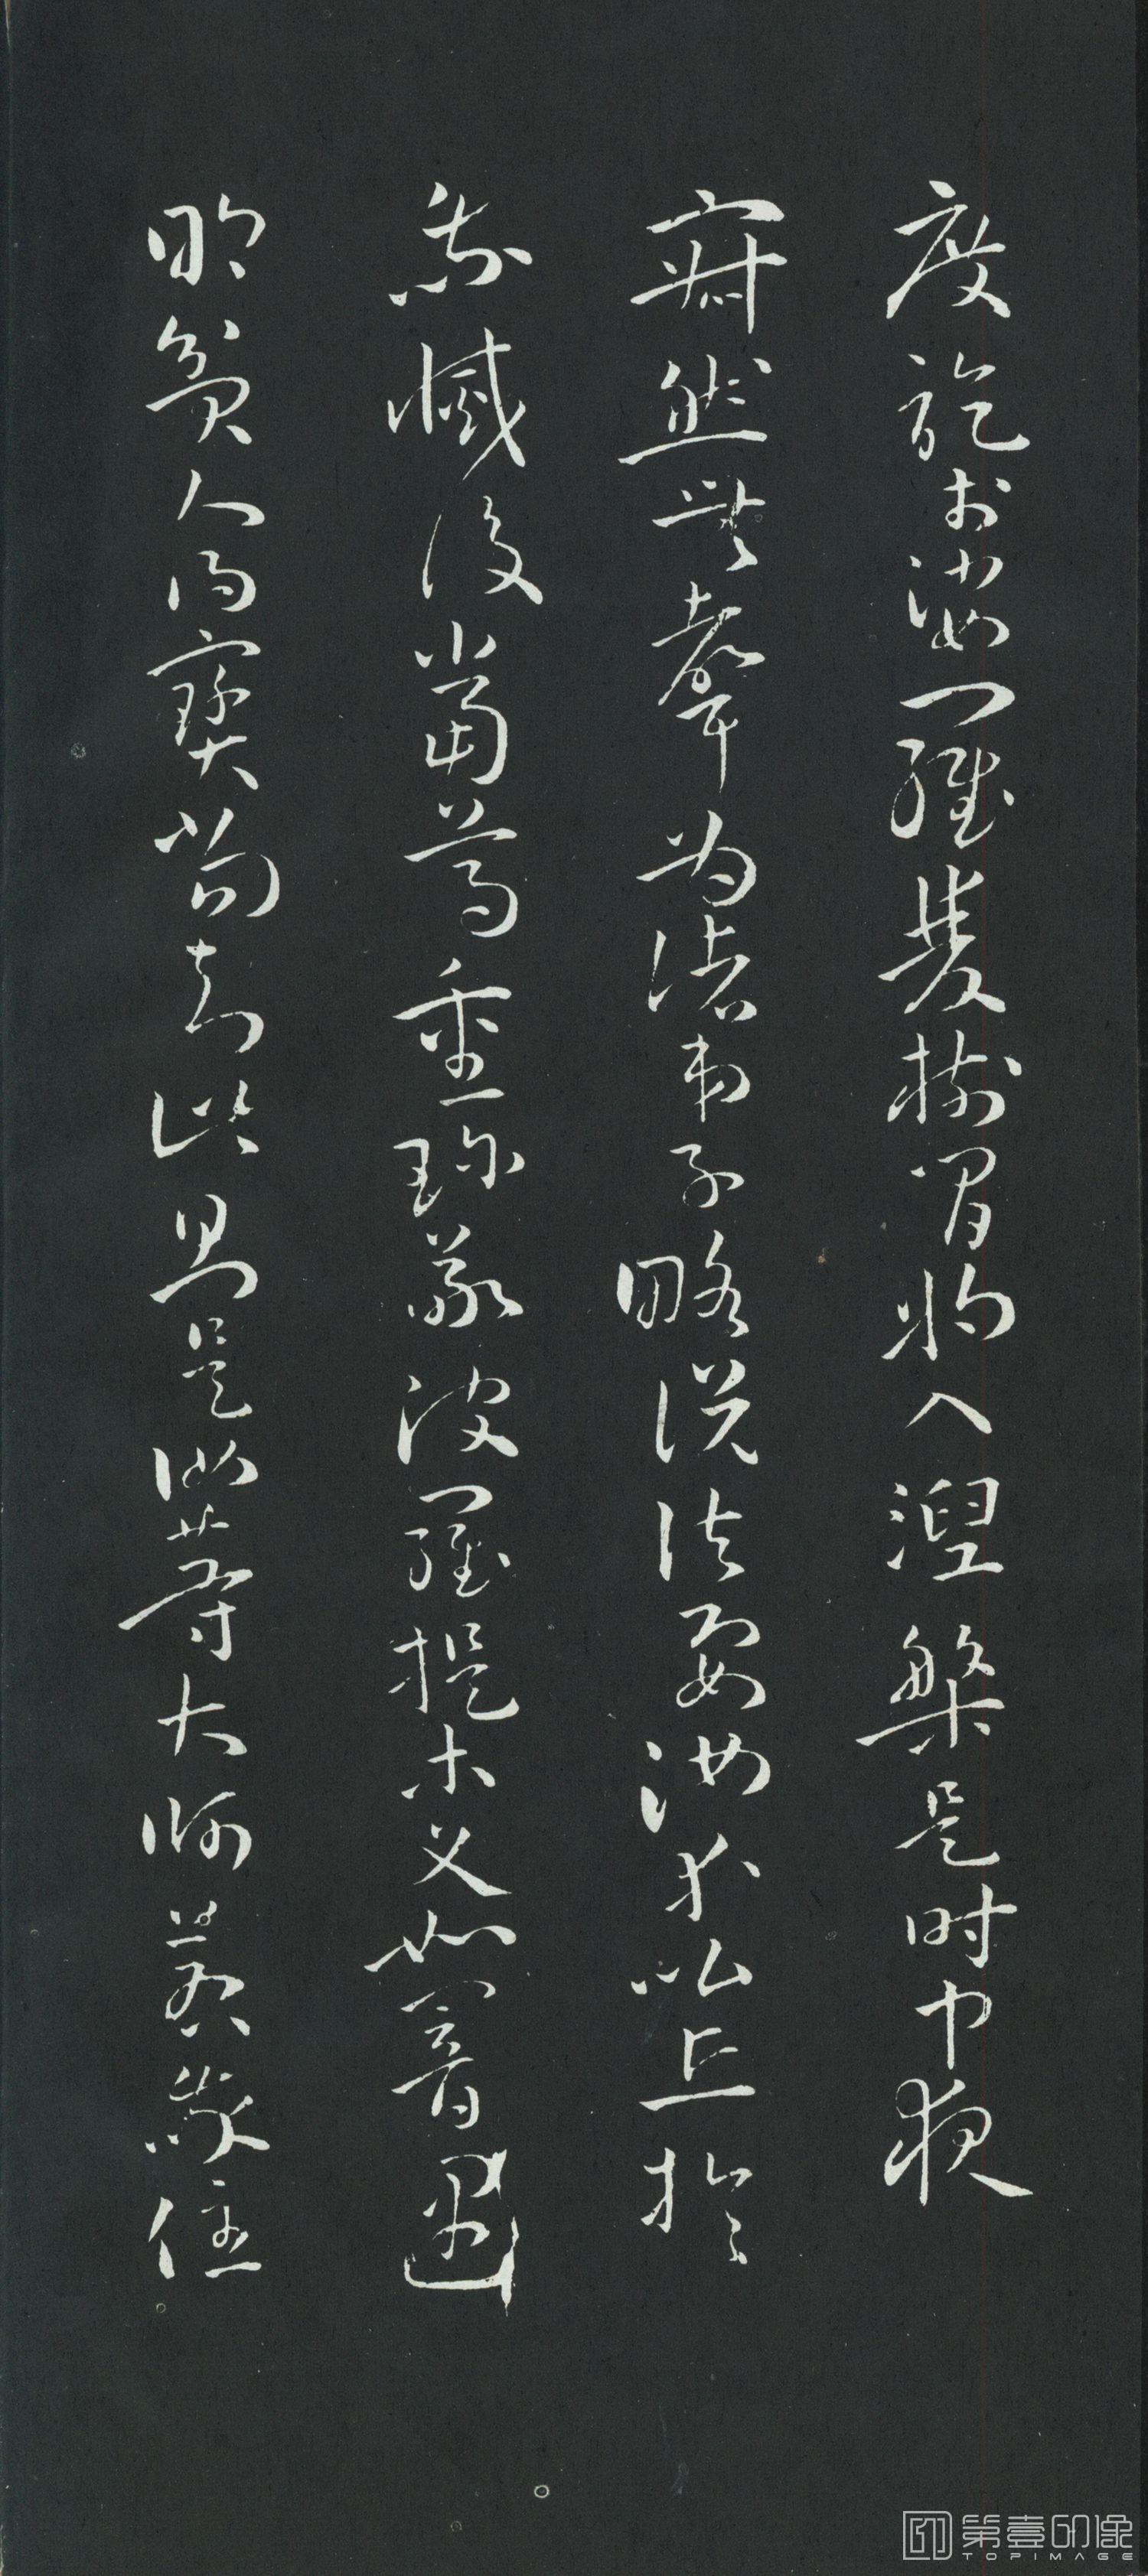 度訖於娑羅雙樹間將入涅槃是時中夜
寂然無聲為諸弟子略說法要汝等比丘於
我滅後當尊重珍敬波羅提木叉如闇遇
明貧人得寶當知此則是汝等大師若我住
第壹印像
TOPIMAGE